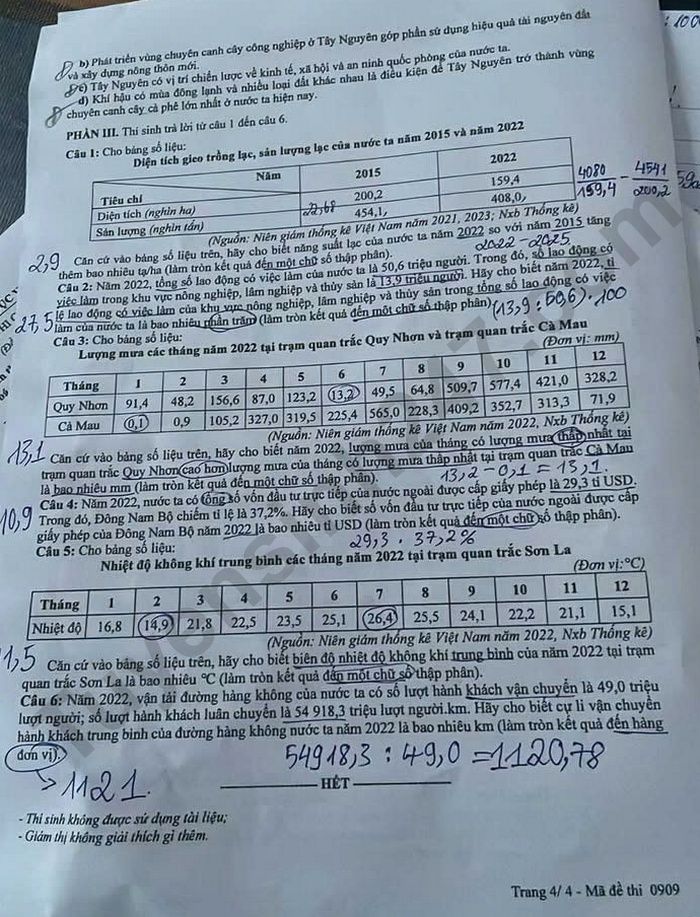 b) Phát triển vùng chuyên canh cây công nghiệp ở Tây Nguyên góp phần sử dụng hiệu quả tài nguyên đất
và xây dựng nông thôn mới.
c) Tây Nguyên có vị trí chiến lược về kinh tế, xã hội và an ninh quốc phòng của nước ta.
d) Khí hậu có mùa đông lạnh và nhiều loại đất khác nhau là điều kiện để Tây Nguyên trở thành vùng
chuyên canh cây cà phê lớn nhất ở nước ta hiện nay.
PHẦN III. Thí sinh trả lời từ câu 1 đến câu 6.
Câu 1: Cho bảng số liệu:
Diện tích gieo trồng lạc, sản lượng lạc của nước ta năm 2015 và năm 2022
Năm 2015 2022
Tiêu chí
Diện tích (nghìn ha) 200,2 159,4
Sản lượng (nghìn tấn) 454,1 408,0
22,68
4080/159,4 - 4541/200,2
(Nguồn: Niên giám thống kê Việt Nam năm 2021, 2023; Nxb Thống kê)
2,9 Căn cứ vào bảng số liệu trên, hãy cho biết năng suất lạc của nước ta năm 2022 so với năm 2015 tăng
thêm bao nhiêu tạ/ha (làm tròn kết quả đến một chữ số thập phân). 2022-2025
Câu 2: Năm 2022, tổng số lao động có việc làm của nước ta là 50,6 triệu người. Trong đó, số lao động có
việc làm trong khu vực nông nghiệp, lâm nghiệp và thủy sản là 13,9 triệu người. Hãy cho biết năm 2022, tỉ
27,5 lệ lao động có việc làm của khu vực nông nghiệp, lâm nghiệp và thủy sản trong tổng số lao động có việc
làm của nước ta là bao nhiêu phần trăm (làm tròn kết quả đến một chữ số thập phân) (13,9 : 50,6) . 100
Câu 3: Cho bảng số liệu:
Lượng mưa các tháng năm 2022 tại trạm quan trắc Quy Nhơn và trạm quan trắc Cà Mau
(Đơn vị: mm)
Tháng 1 2 3 4 5 6 7 8 9 10 11 12
Quy Nhơn 91,4 48,2 156,6 87,0 123,2 13,2 49,5 64,8 509,7 577,4 421,0 328,2
Cà Mau 0,1 0,9 105,2 327,0 319,5 225,4 565,0 228,3 409,2 352,7 313,3 71,9
(Nguồn: Niên giám thống kê Việt Nam năm 2022, Nxb Thống kê)
13,1 Căn cứ vào bảng số liệu trên, hãy cho biết năm 2022, lượng mưa của tháng có lượng mưa thấp nhất tại
trạm quan trắc Quy Nhơn cao hơn lượng mưa của tháng có lượng mưa thấp nhất tại trạm quan trắc Cà Mau
là bao nhiêu mm (làm tròn kết quả đến một chữ số thập phân). 13,2 - 0,1 = 13,1.
Câu 4: Năm 2022, nước ta có tổng số vốn đầu tư trực tiếp của nước ngoài được cấp giấy phép là 29,3 tỉ USD.
10,9 Trong đó, Đông Nam Bộ chiếm tỉ lệ là 37,2%. Hãy cho biết số vốn đầu tư trực tiếp của nước ngoài được cấp
giấy phép của Đông Nam Bộ năm 2022 là bao nhiêu tỉ USD (làm tròn kết quả đến một chữ số thập phân).
Câu 5: Cho bảng số liệu: 29,3 . 37,2%
Nhiệt độ không khí trung bình các tháng năm 2022 tại trạm quan trắc Sơn La
(Đơn vị:°C)
Tháng 1 2 3 4 5 6 7 8 9 10 11 12
Nhiệt độ 16,8 14,9 21,8 22,5 23,5 25,1 26,4 25,5 24,1 22,2 21,1 15,1
(Nguồn: Niên giám thống kê Việt Nam năm 2022, Nxb Thống kê)
1,5 Căn cứ vào bảng số liệu trên, hãy cho biết biên độ nhiệt độ không khí trung bình của năm 2022 tại trạm
quan trắc Sơn La là bao nhiêu °C (làm tròn kết quả đến một chữ số thập phân).
Câu 6: Năm 2022, vận tải đường hàng không của nước ta có số lượt hành khách vận chuyển là 49,0 triệu
lượt người; số lượt hành khách luân chuyển là 54 918,3 triệu lượt người.km. Hãy cho biết cự li vận chuyển
hành khách trung bình của đường hàng không nước ta năm 2022 là bao nhiêu km (làm tròn kết quả đến hàng
đơn vị).
54918,3 : 49,0 = 1120,78
→ 1121.
HẾT
- Thí sinh không được sử dụng tài liệu;
- Giám thị không giải thích gì thêm.
Trang 4/ 4 - Mã đề thi 0909